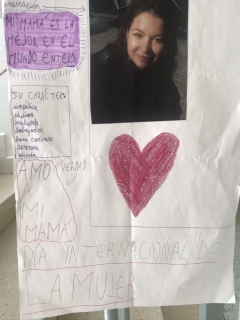 MI MAMÁ ES LA
MEJOR EN EL
MUNDO ENTERO
SU CARÁCTER:
simpática
inteligente
trabajadora
buena cocinera
AMO
VERDAD
A
MI
MAMÁ
DÍA INTERNACIONAL DE
LA MUJER